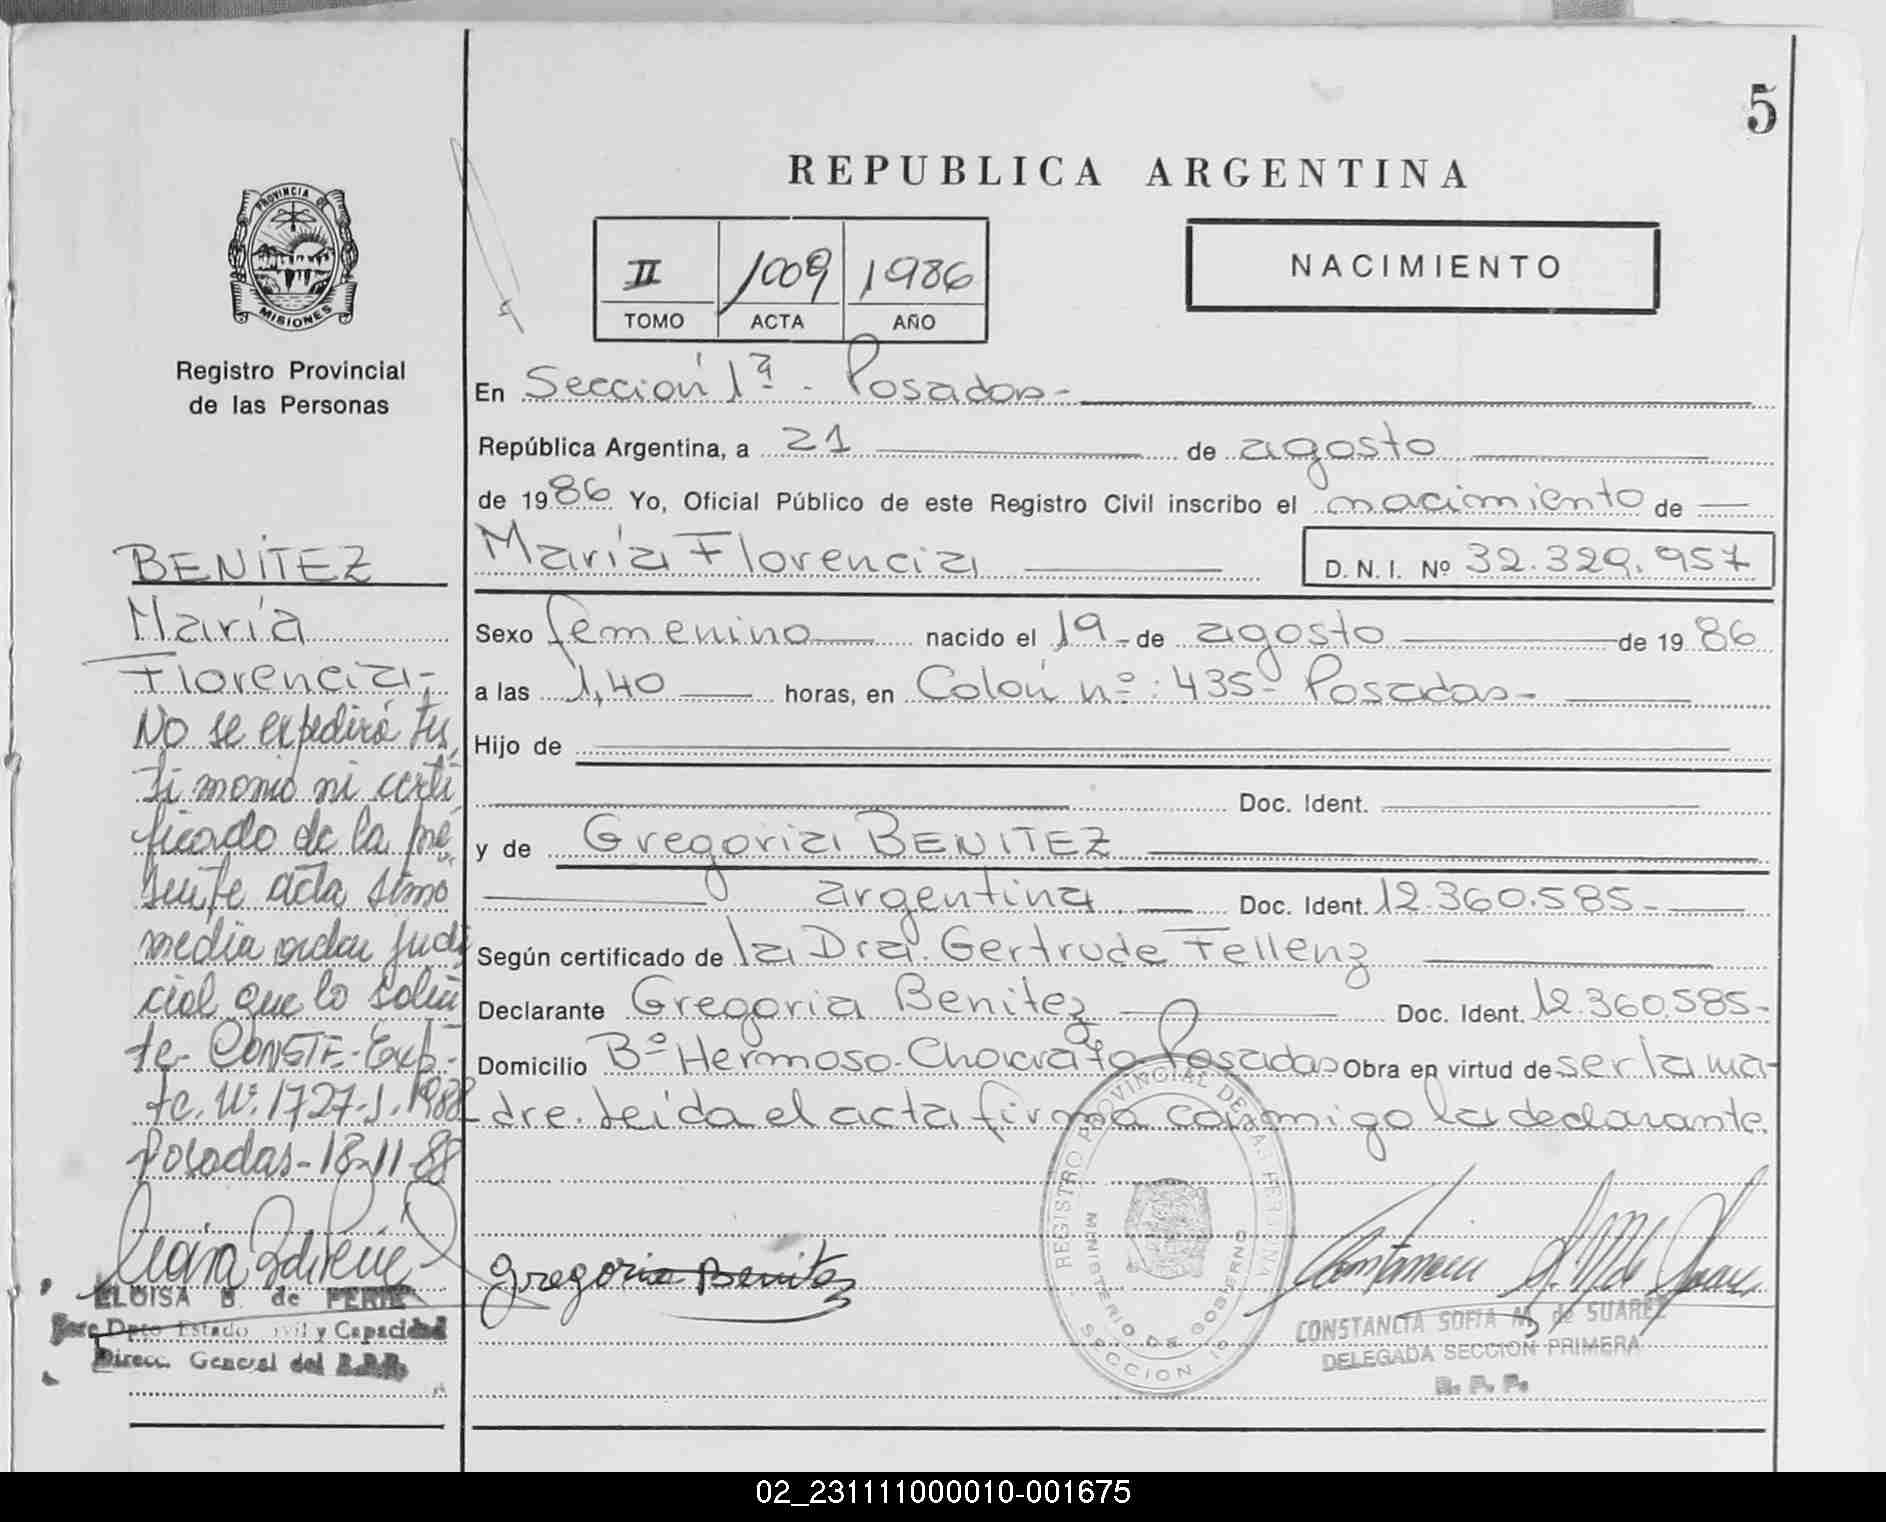 5
REPUBLICA ARGENTINA
PROVINCIA DE
MISIONES
Registro Provincial
de las Personas
II 1009 1986
TOMO ACTA AÑO
NACIMIENTO
En Sección 1ª - Posadas -
República Argentina, a 21 de agosto
de 1986 Yo, Oficial Público de este Registro Civil inscribo el nacimiento de
María Florencia D. N. I. Nº 32.329.957
Sexo femenino nacido el 19 - de agosto de 1986
a las 1,40 horas, en Colón nº: 435- Posadas -
Hijo de
Doc. Ident.
y de Gregoria BENITEZ
argentina Doc. Ident. 12.360.585 -
Según certificado de la Dra. Gertrude Fellenz
Declarante Gregoria Benitez Doc. Ident. 12.360.585-
Domicilio Bº Hermoso - Posadas Obra en virtud de ser la ma-
dre. Leída el acta firma conmigo la declarante.
BENÍTEZ
María
Florencia -
No se expedirá tes
timonio ni certi
ficado de la pre
sente acta sino
media orden judi
cial que lo solici
te - CONSTE - Exp
te. Nº. 1727-J-1988
Posadas - 18-11-88
ELOISA B. de PERIE
Jefe Dpto Estado Civil y Capacidad
Direcc. General del R.P.P.
Gregoria Benitez
REGISTRO PROVINCIAL DE LAS PERSONAS
MINISTERIO DE GOBIERNO
SECCION 1ª
CONSTANCIA SOFIA M. de SUAREZ
DELEGADA SECCION PRIMERA
R. P. P.
02_231111000010-001675